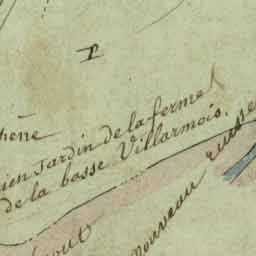 P
hene
ien jardin de la ferme
de la basse Villarmois.
nouveau ruisse
out